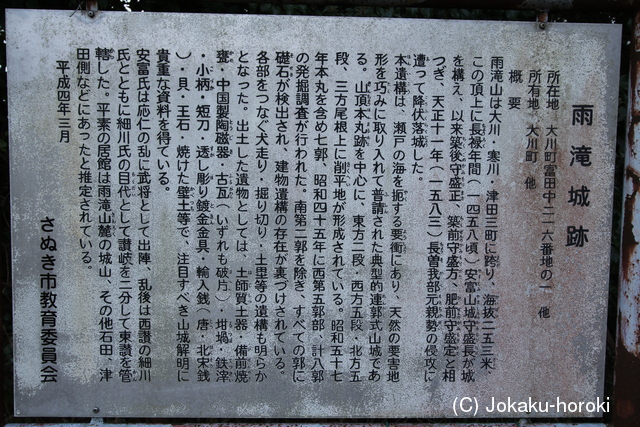 雨滝城跡
所在地 大川町富田中二一六番地の一 他
所有地 大川町 他
概要
雨滝山は大川・寒川・津田三町に跨り、海抜二五三米、
この頂上に長禄年間(一四五八頃)安富山城守盛長が城
を構え、以来築後守盛正、築前守盛方、肥前守盛定と相
つぎ、天正十一年(一五八三)長曽我部元親勢の侵攻に
遭って降伏落城した。
本遺構は、瀬戸の海を扼する要衝にあり、天然の要害地
形を巧みに取り入れて普請された典型的連郭式山城であ
る。山頂本丸跡を中心に、東方二段・西方五段・北方五
段、三方尾根上に削平地が形成されている。昭和五十七
年本丸を含め七郭、昭和四十五年に西第五郭部、計八郭
の発掘調査が行われた。南第二郭を除き、すべての郭に
礎石が検出され、建物遺構の存在が裏づけされている。
各部をつなぐ犬走り・掘り切り・土塁等の遺構も明らか
となった。出土した遺物としては、土師質土器・備前焼
甕・中国製陶磁器・古瓦(いずれも破片)・坩堝・鉄滓
・小柄・短刀・透し彫り鍍金金具・輸入銭(唐・北宋銭
)・貝・玉石・焼けた壁土等で、注目すべき山城解明に
貴重な資料を得ている。
安富氏は応仁の乱に武将として出陣、乱後は西讃の細川
氏とともに細川氏の目代として讃岐を二分して東讃を管
轄した。平素の居館は雨滝山麓の城山、その他石田、津
田側などにあったと推定されている。
平成四年三月
さぬき市教育委員会
(C) Jokaku-horoki